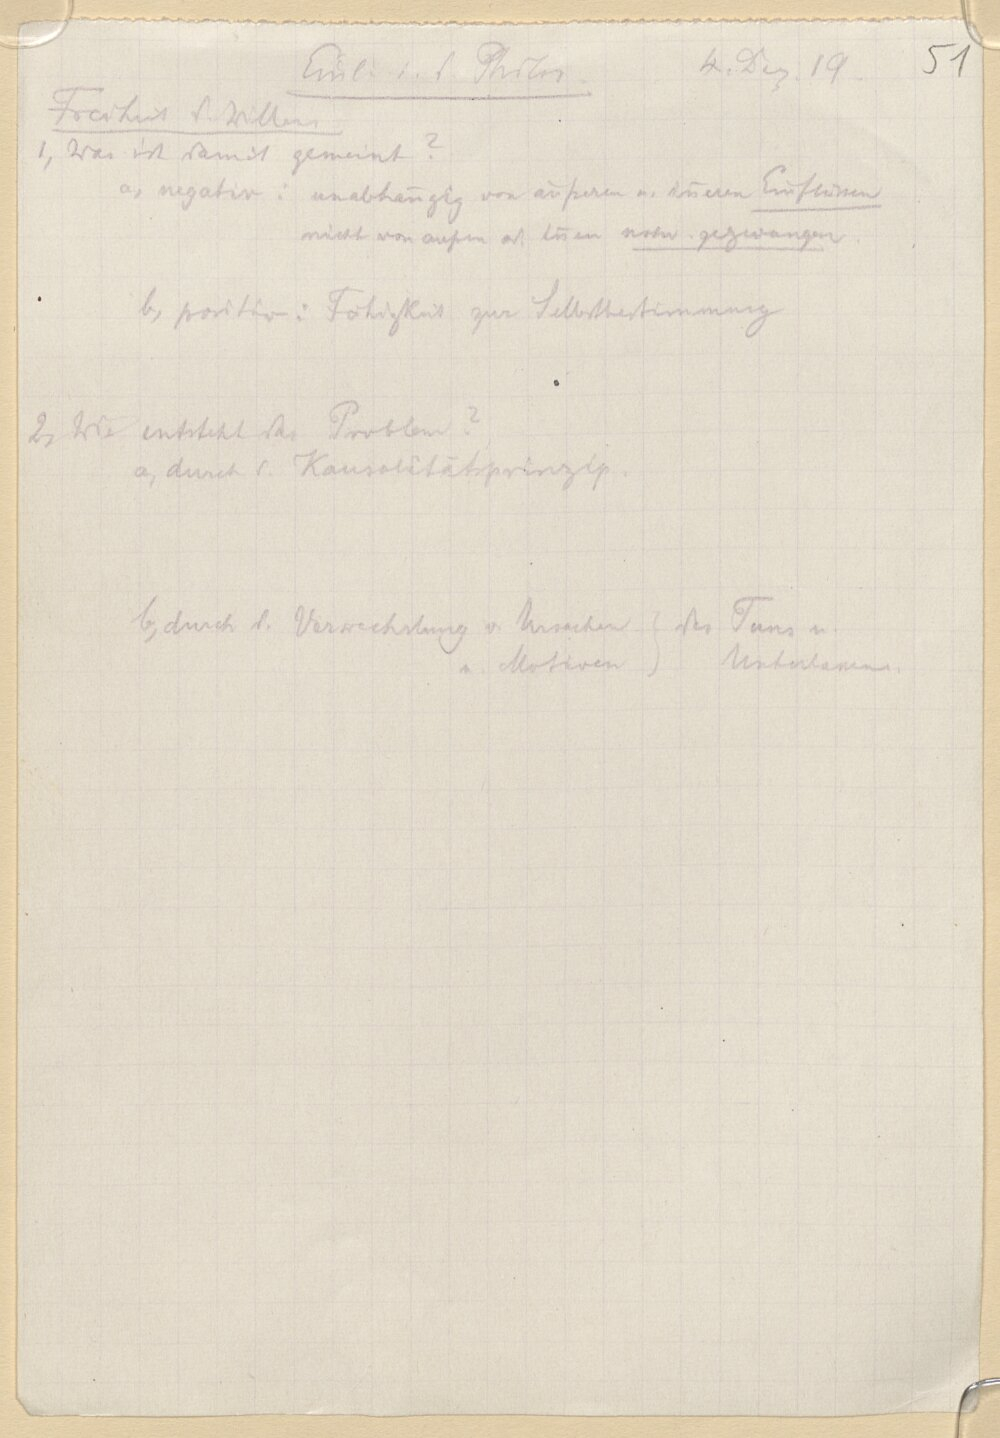 Einl. i. d. Philos. 4. Dez. 19 51
Freiheit d. Willens
1, Was ist damit gemeint?
a, negativ: unabhängig von äußeren u. iñeren Einflüssen
nicht von außen od. iñen notw. gezwungen.
b, positiv: Fähigkeit zur Selbstbestimmung
2, Wie entsteht das Problem?
a, durch d. Kausalitätsprinzip.
b, durch d. Verwechslung v. Ursachen } des Tuns u.
u. Motiven } Unterlassens.